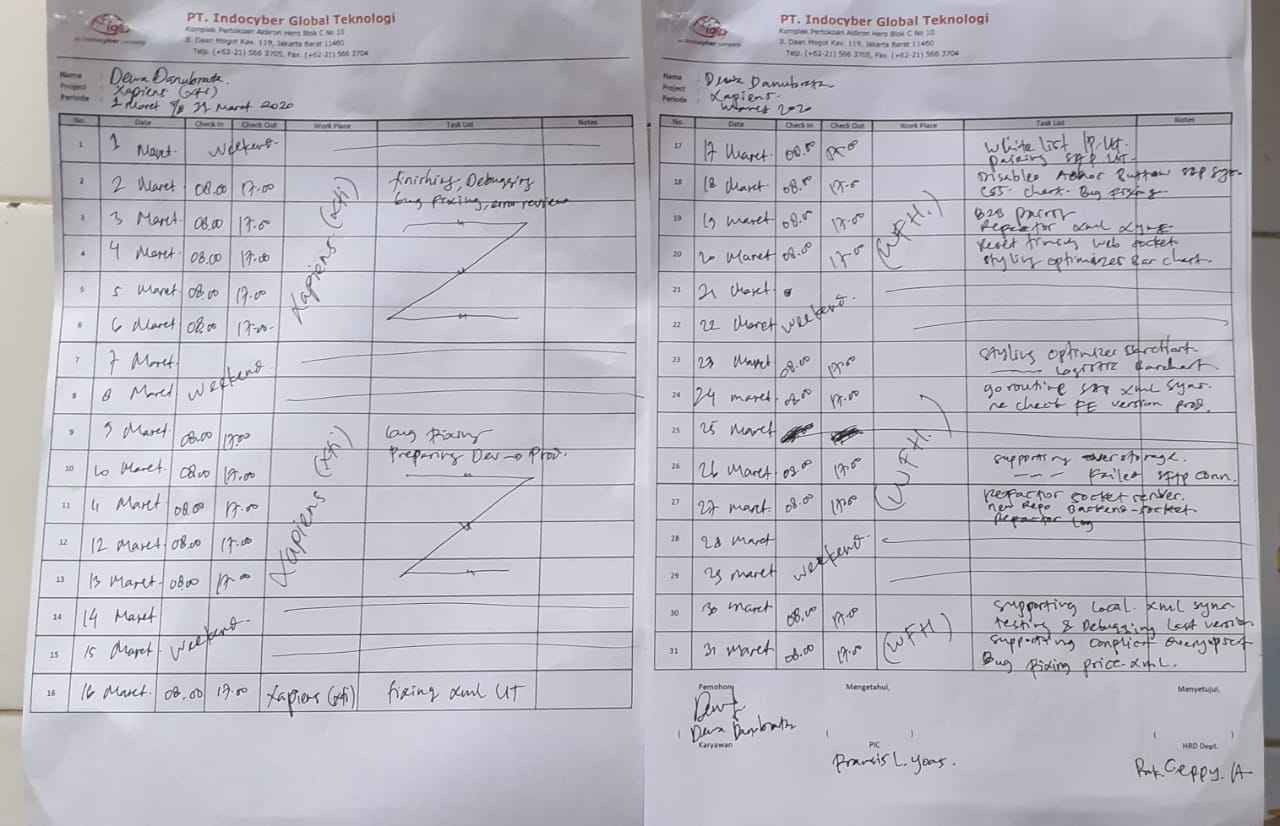 igt
an indocyber company
PT. Indocyber Global Teknologi
Komplek Pertokoan Aldiron Hero Blok C No 10
Jl. Daan Mogot Kav. 119, Jakarta Barat 11460
Telp. (+62-21) 566 3705, Fax. (+62-21) 566 3704
Name : Dewa Danubrata.
Project : Xapiens (xti)
Periode : 1 Maret s/d 31 Maret 2020
No. Date Check In Check Out Work Place Task List Notes
1 1 Maret. weekend.
2 2 Maret. 08.00 17.00 Xapiens (xti) finishing, Debugging
bug fixing, error review
3 3 Maret. 08.00 17.00
4 4 Maret. 08.00 17.00
5 5 Maret 08.00 17.00
6 6 Maret 08.00 17.00
7 7 Maret. weekend
8 8 Maret
9 9 Maret. 08.00 17.00 Xapiens (xti) bug fixing
Preparing Dev → Prod.
10 10 Maret. 08.00 17.00
11 11 Maret 08.00 17.00
12 12 Maret 08.00 17.00
13 13 Maret. 08.00 17.00
14 14 Maret weekend.
15 15 Maret.
16 16 Maret. 08.00 17.00 Xapiens (xti) fixing xml UT
igt
an indocyber company
PT. Indocyber Global Teknologi
Komplek Pertokoan Aldiron Hero Blok C No 10
Jl. Daan Mogot Kav. 119, Jakarta Barat 11460
Telp. (+62-21) 566 3705, Fax. (+62-21) 566 3704
Name : Dewa Danubrata
Project : Xapiens.
Periode : Maret 2020
No. Date Check In Check Out Work Place Task List Notes
17 17 Maret. 08.00 (WFH.) White list IP UT.
parsing UT.
18 18 Maret. 08.00 17.00 Disabled Button sync.
CSS. chart. Bug fixing
19 19 Maret 08.00 17.00 B2B
Refactor xml sync
20 20 Maret 08.00 17.00 reset timing web socket
styling optimizer Bar chart.
21 21 Maret weekend.
22 22 Maret
23 23 Maret 08.00 17.00 (WFH.) styling optimizer Barchart.
Logistic Barchart.
24 24 Maret. 08.00 17.00 go routine xml sync.
re check FE version prod.
25 25 Maret
26 26 Maret 08.00 17.00 supporting
Failed SFTP Conn.
27 27 Maret. 08.00 17.00 Refactor socket server.
new Repo Backend-socket
Refactor Log
28 28 Maret weekend.
29 29 Maret
30 30 Maret 08.00 17.00 (WFH) supporting Local. xml sync
testing & Debugging Last version
31 31 Maret 08.00 17.00 supporting conflict
Bug fixing price xml.
Pemohon, Mengetahui, Menyetujui,
Dewa Danubrata
( ) ( ) ( )
Karyawan PIC HRD Dept.
Fransis L. Yoas.
Bpk. Ceppy. A